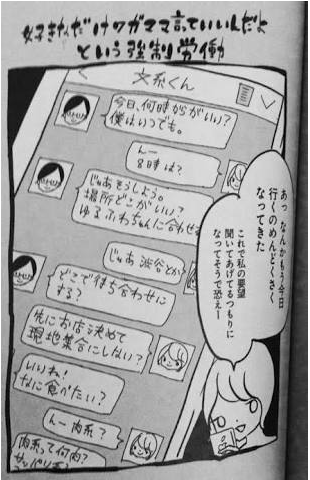 好きなだけワガママ言っていいんだよ
という強制労働
文系くん
今日、何時からがいい?
僕はいつでも。
んー
8時は?
じゃあそうしよう。
場所どこがいい?
ゆるふわちゃんに合わせ
じゃあ渋谷とか
どこで待ち合わせに
する?
先にお店決めて
現地集合にしない?
いいね!
なに食べたい?
んー肉系?
肉系って何肉?
サッパリ系
あっ なんかもう今日
行くのめんどくさく
なってきた
これで私の要望
聞いてあげてるつもりに
なってそうで恐えー